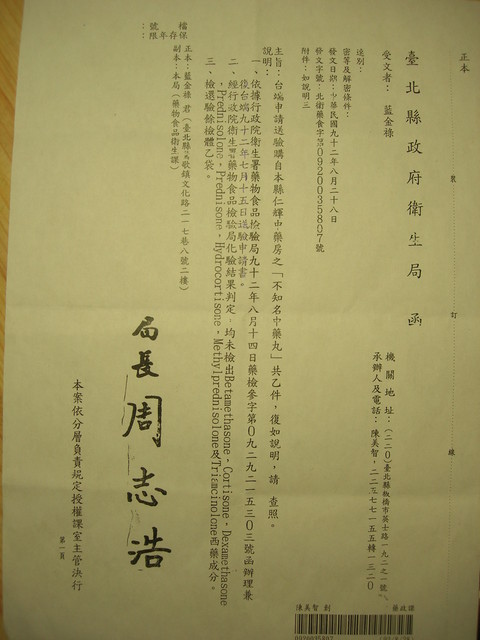 正本
臺北縣政府衛生局 函
機關地址：(二二0)臺北縣板橋市英士路一九二之一號
承辦人及電話：陳美智，二二五七七一五五轉一三二0
受文者：藍金祿
速別：
密等及解密條件：
發文日期：中華民國九十二年八月二十八日
發文字號：北衛藥食字第0920035807號
附件：如說明三
主旨：台端申請送驗購自本縣仁輝中藥房之「不知名中藥丸」共乙件，復如說明，請 查照。
說明：
一、依據行政院衛生署藥物食品檢驗局九十二年八月十四日藥檢參字第0九二九二一五三0三號函辦理兼
後台端九十二年七月十五日送驗申請書。
二、經行政院衛生署藥物食品檢驗局化驗結果判定，均未檢出Betamethasone、Cortisone、Dexamethasone
、Prednisolone、Prednisone、Hydrocortisone、Methylprednisolone及Triamcinolone西藥成分。
三、檢還驗餘檢體乙袋。
正本：藍金祿 君（臺北縣鶯歌鎮文化路二一七巷八號二樓）
副本：本局（藥物食品衛生課）
檔號：
保存年限：
局長 周志浩
本案依分層負責規定授權課室主管決行
第一頁
裝
訂
線
陳美智 創
藥政課
0920035807